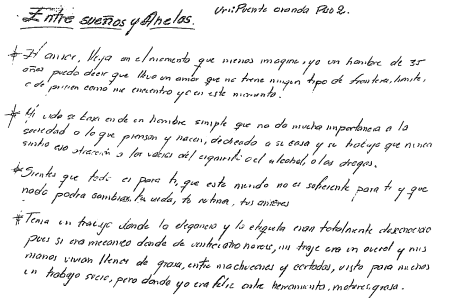 Entre sueños y Anhelos.
Uri: Puente aranda Pab 2.
* El amor, llega en el momento que menos imagina, yo un hombre de 35
años puedo decir que llevo un amor que no tiene ningun tipo de frontera, limite,
o de prision como me encuentro yo en este momento.
* Mi vida se basa en un hombre simple que no da mucha importancia a la
sociedad a lo que piensan y hacen, dedicado a su casa y su trabajo que nunca
sintio esa atracción a los vicios del cigarrillo del alcohol, o las drogas.
* Sientes que todo es para ti, que este mundo no es suficiente para ti y que
nada podra cambiar tu vida, tu rutina, tus
* Tenia un trabajo donde la elegancia y la etiqueta eran totalmente desconocido
pues si era mecanico donde de mi traje era un overol y mis
manos vivian llenas de grasa, entre machucones y cortadas, visto para muchos
un trabajo sucio, pero donde yo era feliz entre herramienta, motores, grasa.